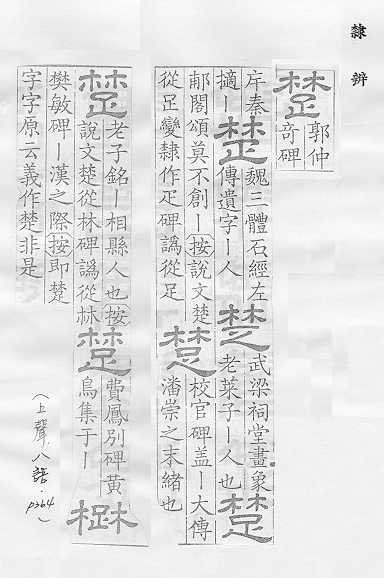 隸辨
楚
郭仲
奇碑
斥秦
擿｜
楚
魏三體石經左
傳遺字｜人
楚
武梁祠堂畫象
老萊子｜人也
楚
郙閣頌莫不創｜按說文楚
從疋變隸作疋碑譌從足
楚
校官碑盖｜大傳
潘崇之末緒也
楚
老子銘｜相縣人也按
說文楚從林碑譌從𣏟
楚
費鳳別碑黃
鳥集于｜
楚
樊敏碑｜漢之際按即楚
字字原云義作楚非是
（上聲八語 p364）